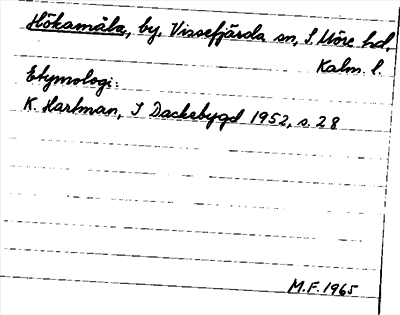 Hökamåla, by, Vissefjärda sn, S. Möre hd,
Kalm. l.
Etymologi:
K. Hartman, I Dackebygd 1952, s. 28
M.F. 1965